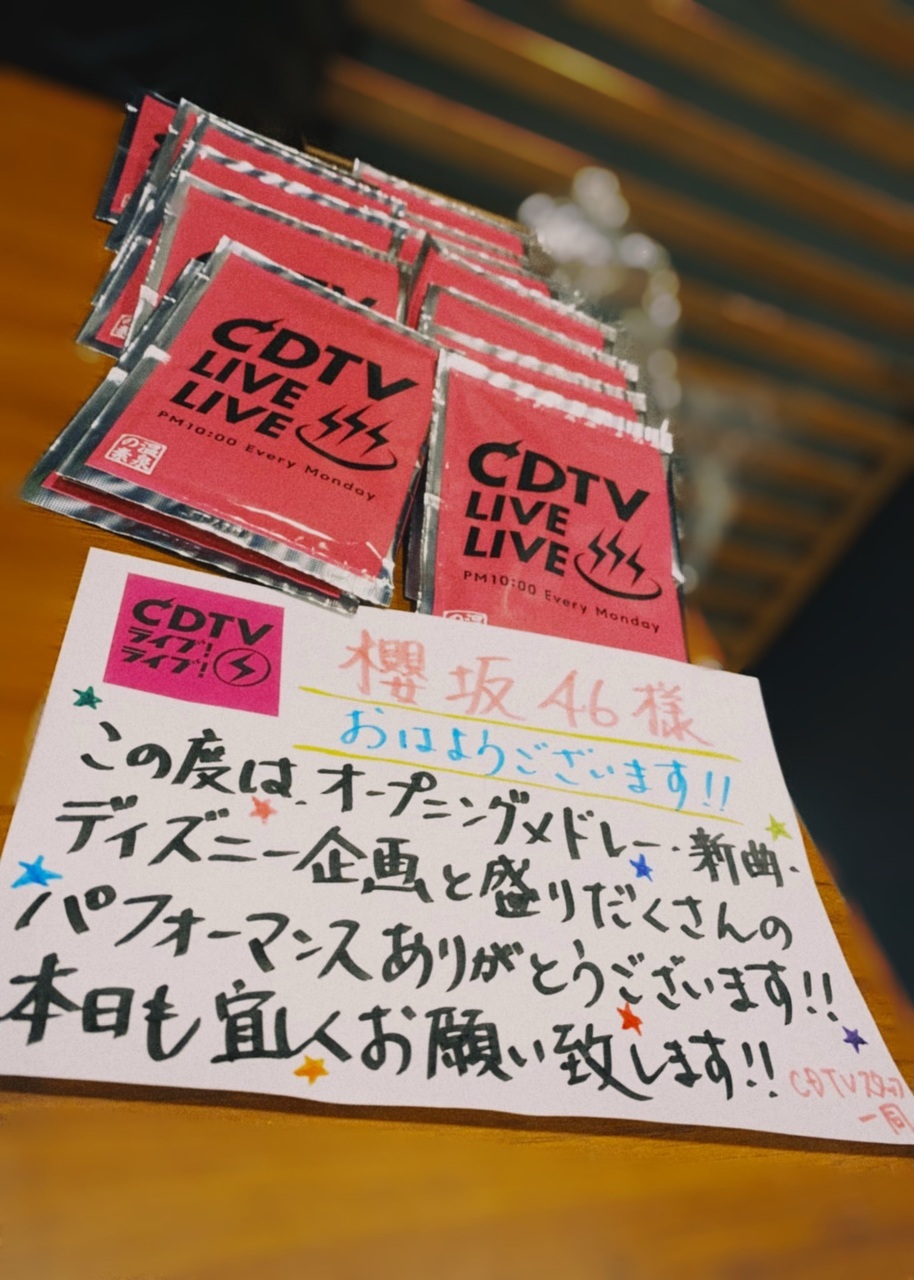 CDTV
LIVE
LIVE
PM10:00 Every Monday
温泉
の素
CDTV
LIVE
LIVE
PM10:00 Every Monday
CDTV
ライブ!
ライブ!
櫻坂46様
おはようございます!!
この度は、オープニングメドレー・新曲・
ディズニー企画と盛りだくさんの
パフォーマンスありがとうございます!!
本日も宜しくお願い致します!!
CDTVスタッフ
一同